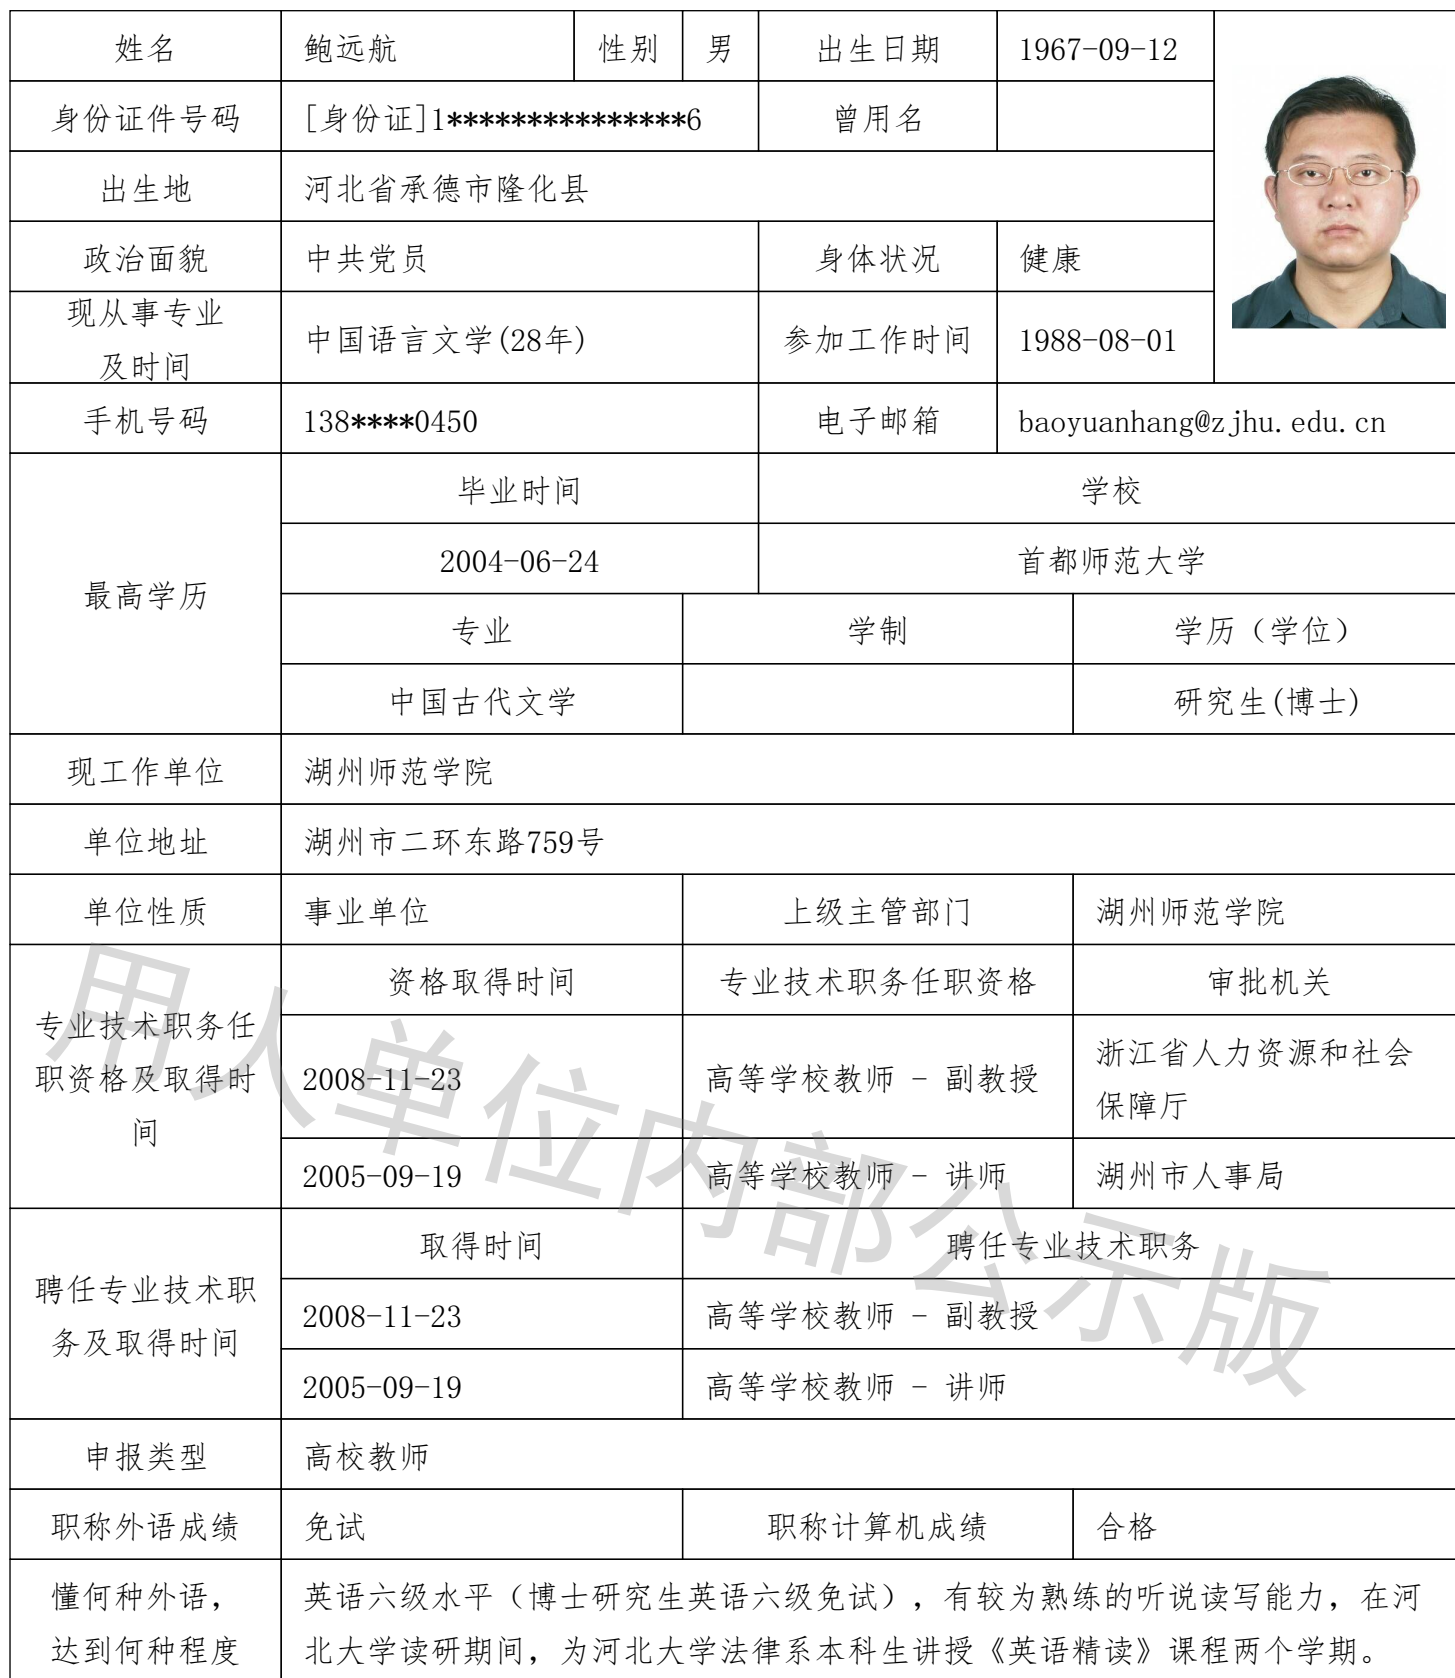 姓名 鲍远航 性别 男 出生日期 1967-09-12
身份证件号码 [身份证]1***************6 曾用名
出生地 河北省承德市隆化县
政治面貌 中共党员 身体状况 健康
现从事专业
及时间
中国语言文学(28年) 参加工作时间 1988-08-01
手机号码 138****0450 电子邮箱 baoyuanhang@zjhu.edu.cn
最高学历
毕业时间 学校
2004-06-24 首都师范大学
专业 学制 学历（学位）
中国古代文学 研究生(博士)
现工作单位 湖州师范学院
单位地址 湖州市二环东路759号
单位性质 事业单位 上级主管部门 湖州师范学院
专业技术职务任
职资格及取得时
间
资格取得时间 专业技术职务任职资格 审批机关
2008-11-23 高等学校教师 - 副教授 浙江省人力资源和社会
保障厅
2005-09-19 高等学校教师 - 讲师 湖州市人事局
聘任专业技术职
务及取得时间
取得时间 聘任专业技术职务
2008-11-23 高等学校教师 - 副教授
2005-09-19 高等学校教师 - 讲师
申报类型 高校教师
职称外语成绩 免试 职称计算机成绩 合格
懂何种外语，
达到何种程度
英语六级水平（博士研究生英语六级免试），有较为熟练的听说读写能力，在河
北大学读研期间，为河北大学法律系本科生讲授《英语精读》课程两个学期。
用人单位内部公示版